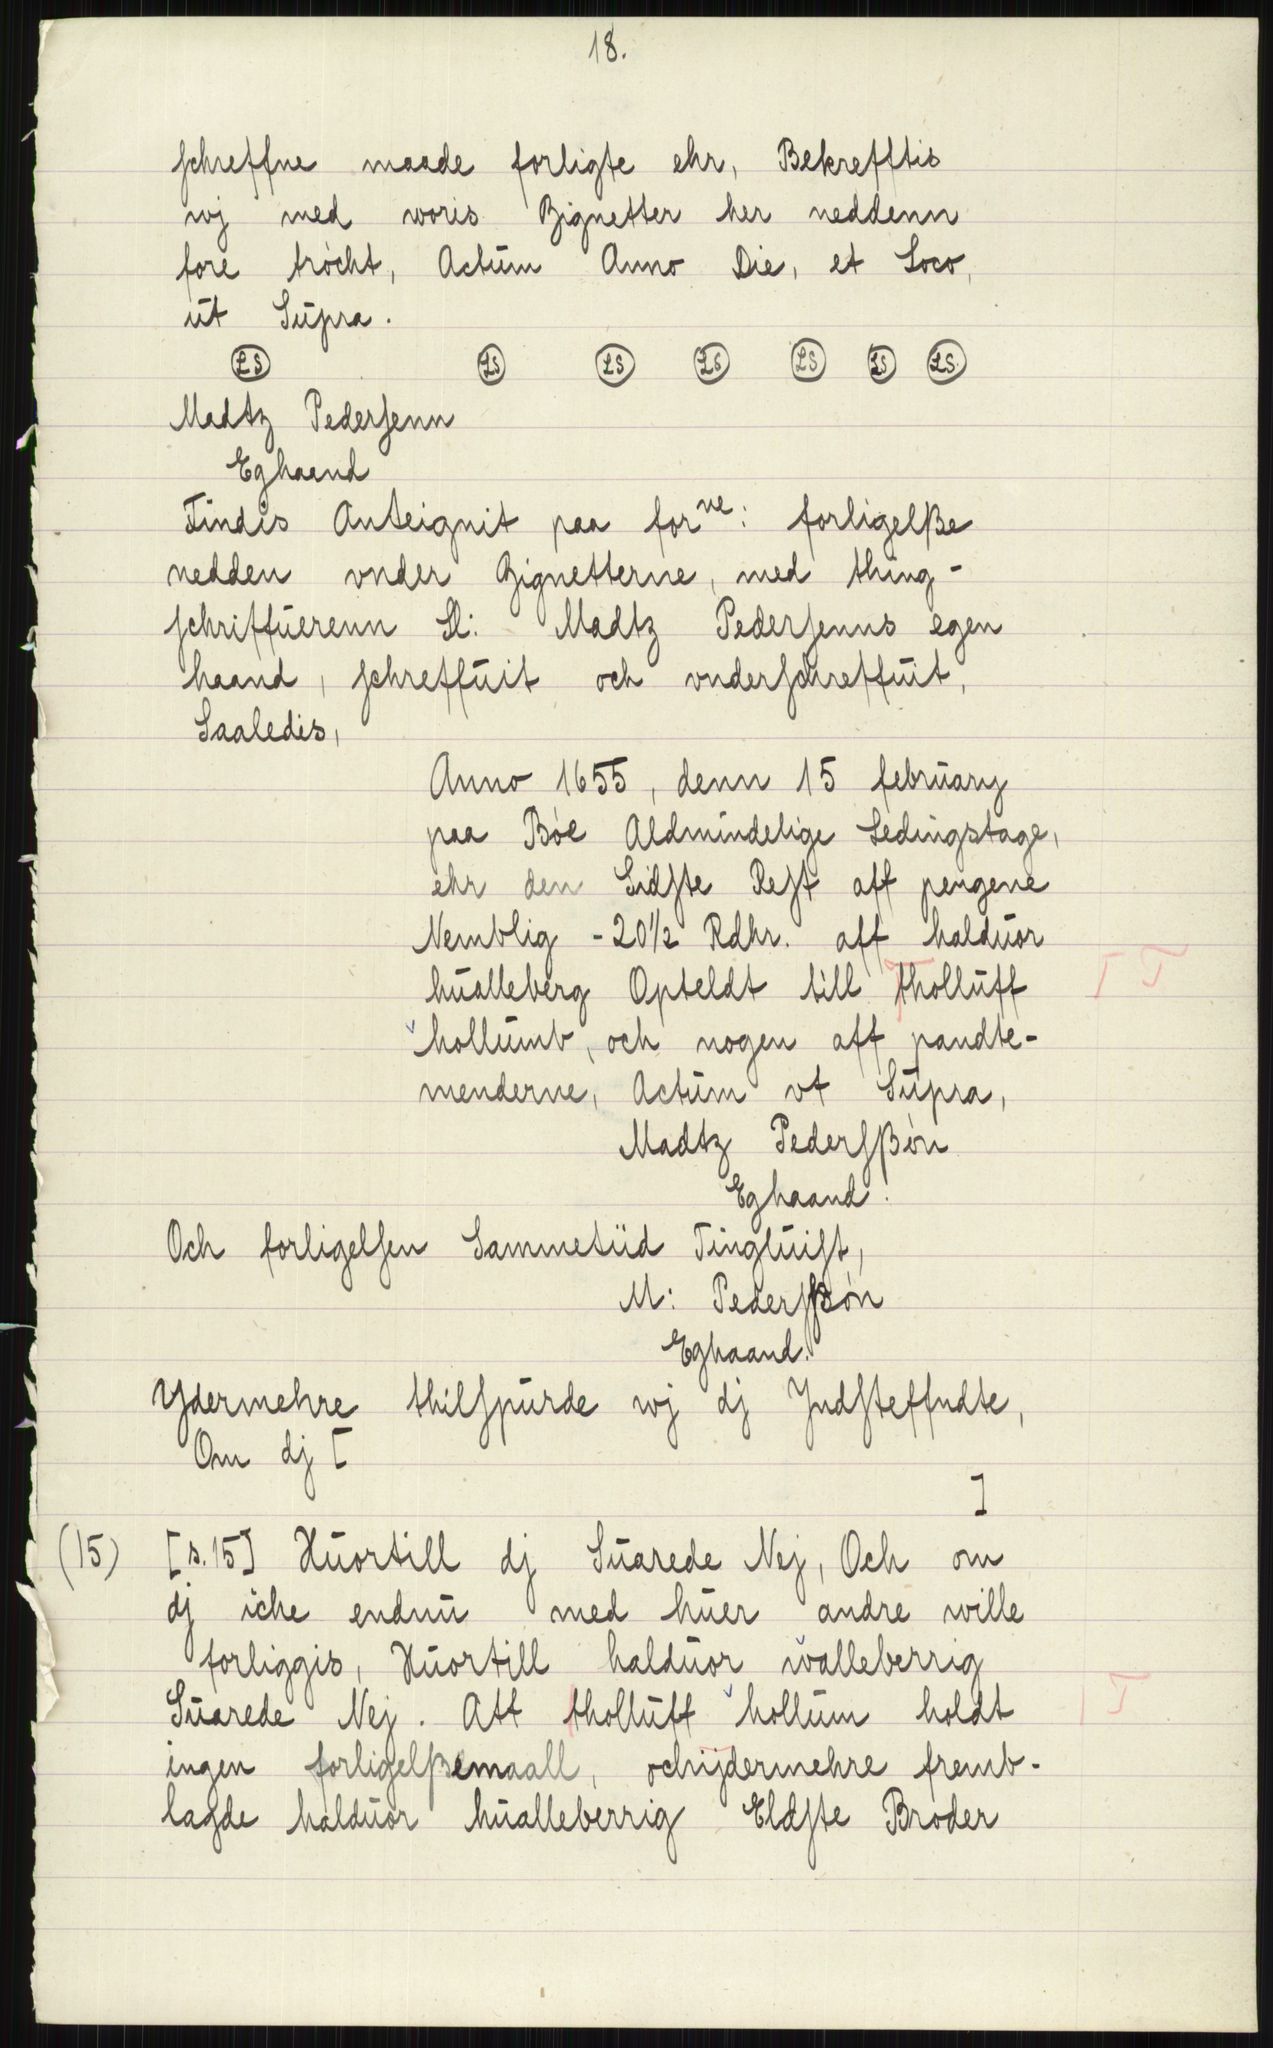 18.
schreffne maade forligte ehr, Bekrefftis
wj med woris Zignetter her neddenn
fore tröcht, Actum Anno Die, et Loco,
ut Supra.
LS LS LS LS LS LS LS.
Madtz Pedersenn
Eghaand
Findis Anteignit paa for ne: forligelße
nedden vnder Zignetterne, med thing-
schriffuerenn Sl: Madtz Pedersenns egen
haand, schreffuit och vnderschreffuit,
Saaledis,
Anno 1655, denn 15 february
paa Böe Aldmindelige Ledingstage,
ehr den Sidste Rest aff pengene
Nemblig - 20½ Rdhr. aff halduor
hualleberg Opteldt till tholluff
hollumb, och nogen aff pandte-
menderne, Actum vt Supra,
Madtz Pedersßön
Eghaand.
Och forligelsen Sammetiid Tingluist,
M: Pedersßön
Eghaand.
Ydermehre thilspurde wj dj Jndsteffndte,
Om dj [
]
(15) [s. 15] Huortill dj Suarede Nej, Och om
dj iche endnu med huer andre wille
forliggis, Huortill halduor walleberrig
Suarede Nej. Att tholluff hollum holdt
ingen forligelßemaall, ochijdermehre fremb-
lagde halduor hualleberrig Eldste Broder
T T
T